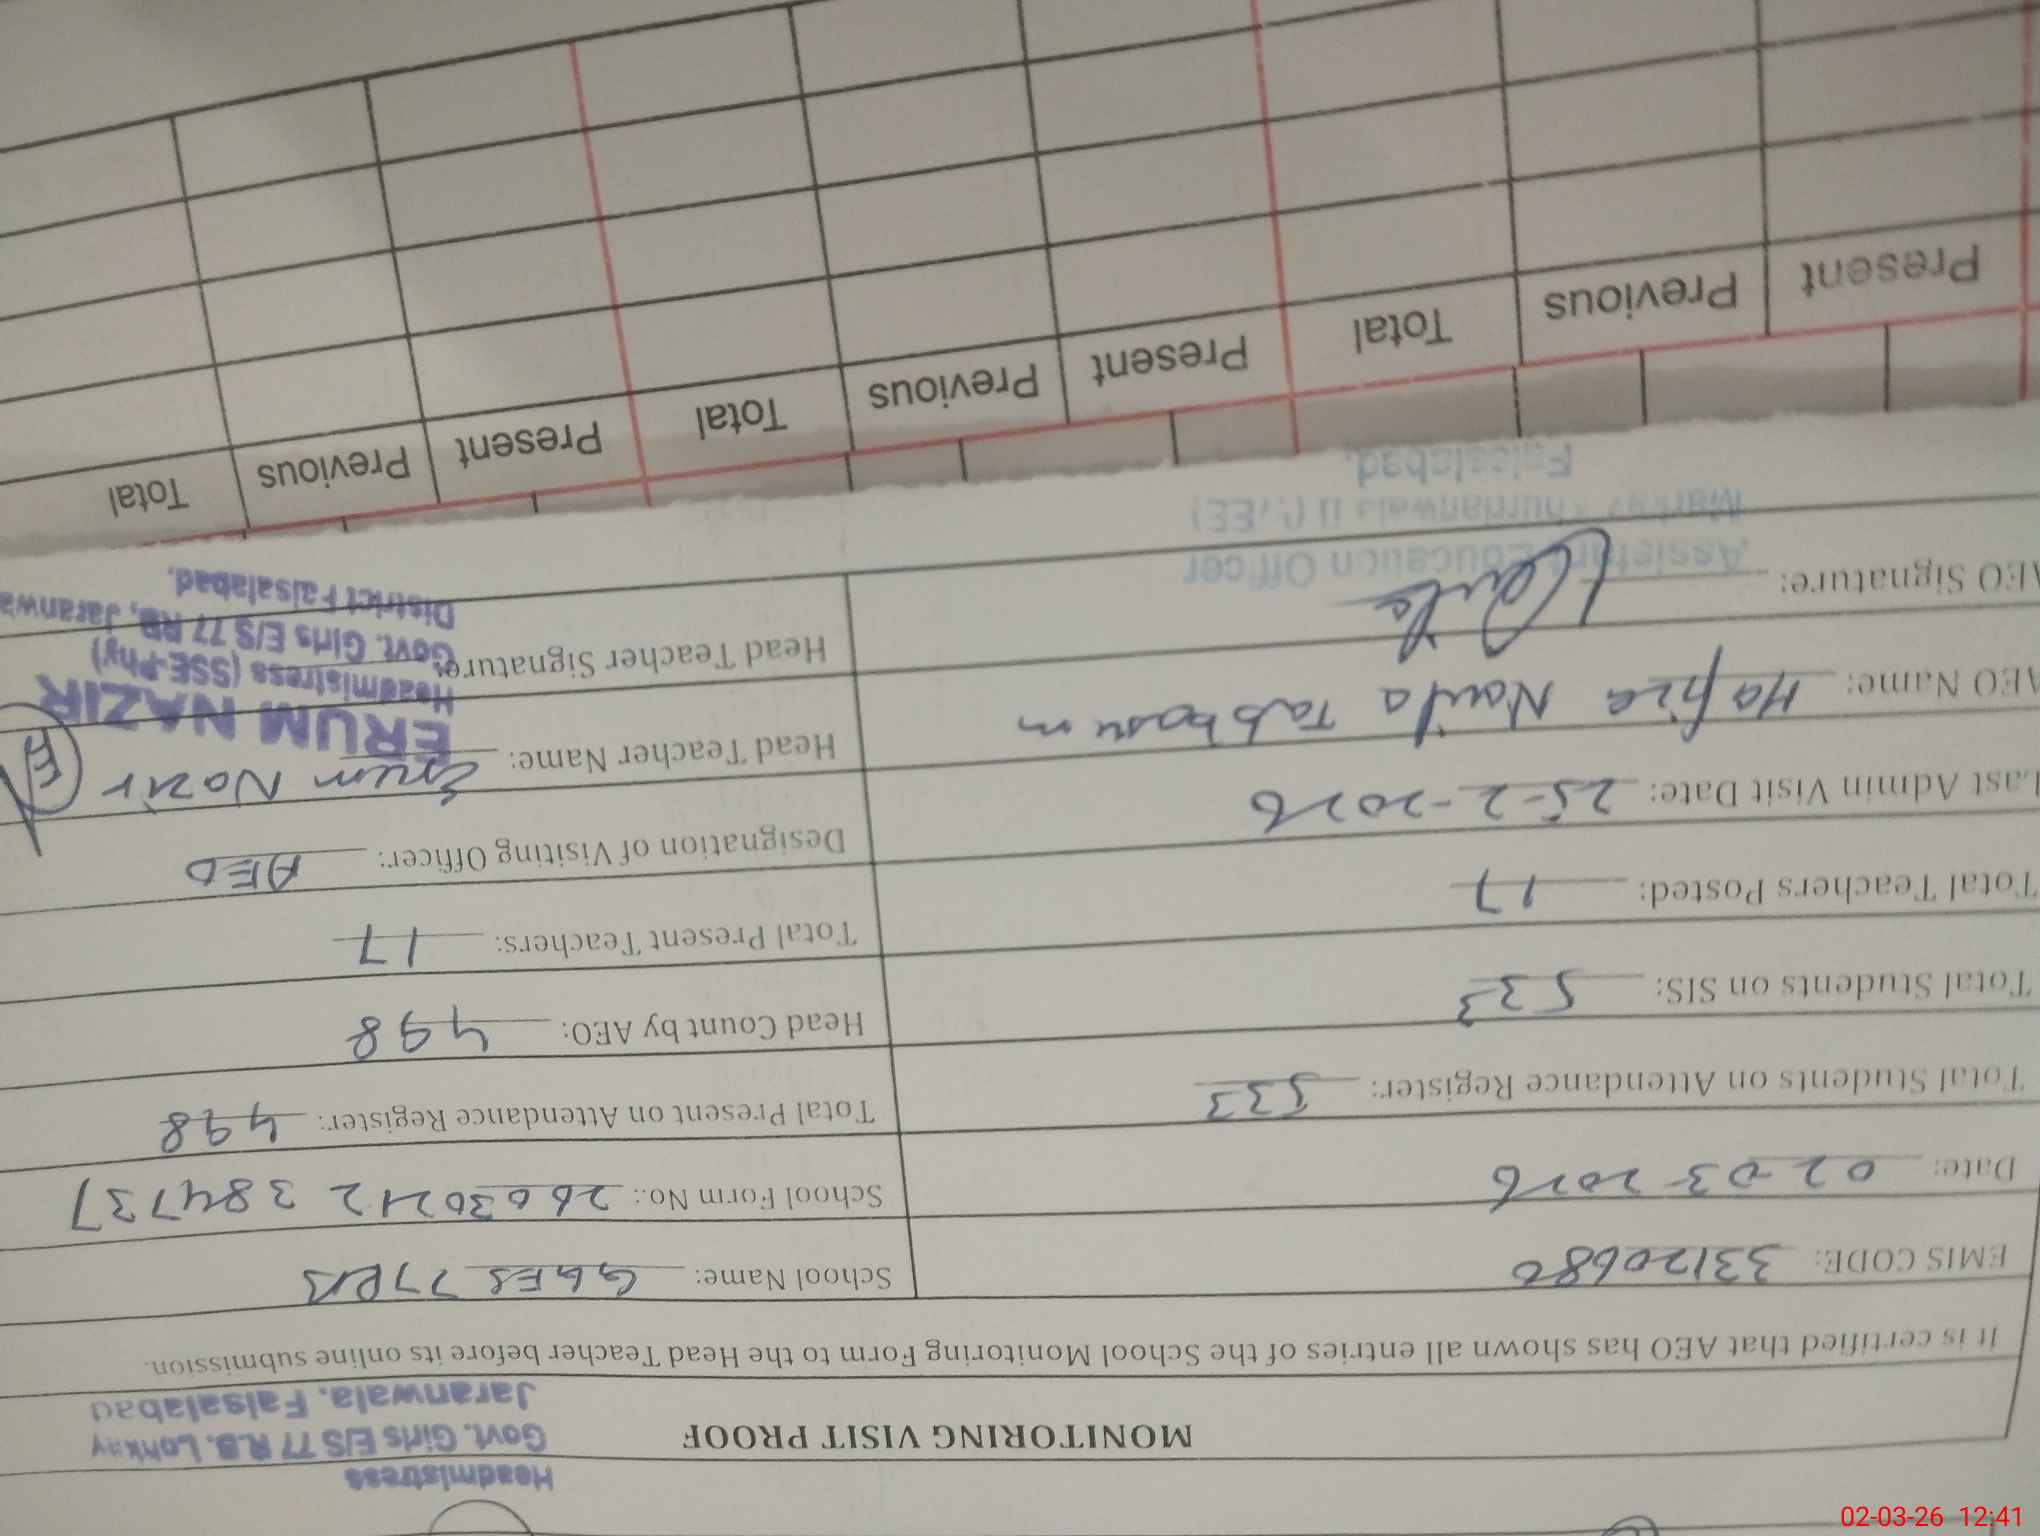 Headmistress
Govt. Girls E/S 77 R.B. Lohkay
Jaranwala. Faisalabad
MONITORING VISIT PROOF
It is certified that AEO has shown all entries of the School Monitoring Form to the Head Teacher before its online submission.
EMIS CODE: 33120680 School Name: GGES 77RB
Date: 02-03-2026 School Form No.: 26030212 384737
Total Students on Attendance Register: 533 Total Present on Attendance Register: 498
Total Students on SIS: 533 Head Count by AEO: 498
Total Teachers Posted: 17 Total Present Teachers: 17
Last Admin Visit Date: 25-2-2026 Designation of Visiting Officer: AEO
AEO Name: Hafiza Naila Tabbasum Head Teacher Name: Erum Nazir
ERUM NAZIR
Headmistress (SSE-Phy)
Govt. Girls E/S 77 RB, Jaranwa
District Faisalabad.
AEO Signature: Head Teacher Signature:
Assistant Education Officer
Markaz Khurrianwala II
Faisalabad.
Present Previous Total Present Previous Total Present Previous Total
02-03-26 12:41